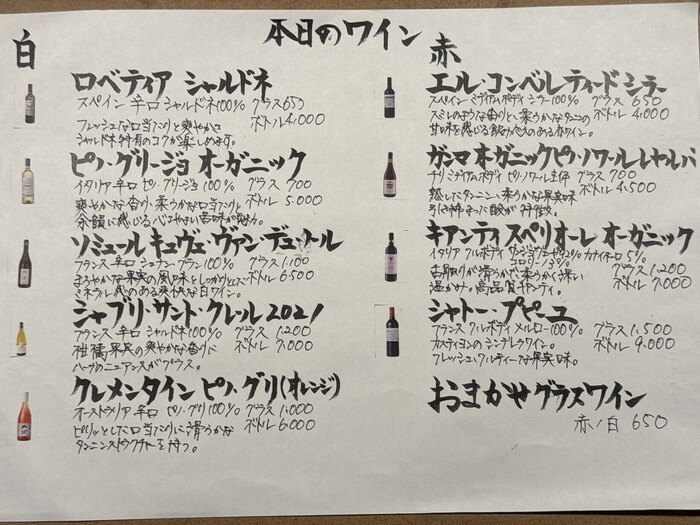 本日のワイン
白
ロベティア シャルドネ
スペイン 辛口 シャルドネ100% グラス650
ボトル4,000
フレッシュな口当たりと爽やかさ
シャルドネ特有のコクが楽しめます。
ピノ・グリージョ オーガニック
イタリア 辛口 ピノ・グリージョ100% グラス700
ボトル5,000
爽やかな香り、柔らかな口当たりと
余韻に感じる心地よい苦味が魅力。
ソミュール キュヴェ ヴァン・デュ・ノール
フランス 辛口 シュナン・ブラン100% グラス1,100
ボトル6,500
まろやかな果実の風味としっかりとした
ミネラル感のある爽快な白ワイン。
シャブリ・サント・クレール 2021
フランス 辛口 シャルドネ100% グラス1,200
ボトル7,000
柑橘果実の爽やかな香りに
ハーブのニュアンスがプラス。
クレメンタイン ピノ・グリ(オレンジ)
オーストラリア 辛口 ピノ・グリ100% グラス1,000
ボトル6,000
ピリッとした口当たりに滑らかな
タンニンストラクチャーを持つ。
赤
エル・コンベルティード シラー
スペイン ミディアムボディ シラー100% グラス650
ボトル4,000
スミレのような香りと、柔らかなタンニン
甘味を感じる飲みごたえのある赤ワイン。
ガンマ オーガニック ピノ・ノワール レセルバ
チリ ミディアムボディ ピノ・ノワール主体 グラス700
ボトル4,500
熟したタンニン、柔らかな果実味
引き締まった酸が特徴。
キアンティ スペリオーレ オーガニック
イタリア フルボディ サンジョヴェーゼ92% カナイオーロ5%
グラス1,200
ボトル7,000
舌触りが滑らかで柔らかく深い
温かみ。高品質キャンティ。
シャトー・プピーユ
フランス フルボディ メルロー100% グラス1,500
ボトル9,000
カスティヨンのシンデレラワイン。
フレッシュ、フルーティーな果実味。
おまかせグラスワイン
赤/白 650